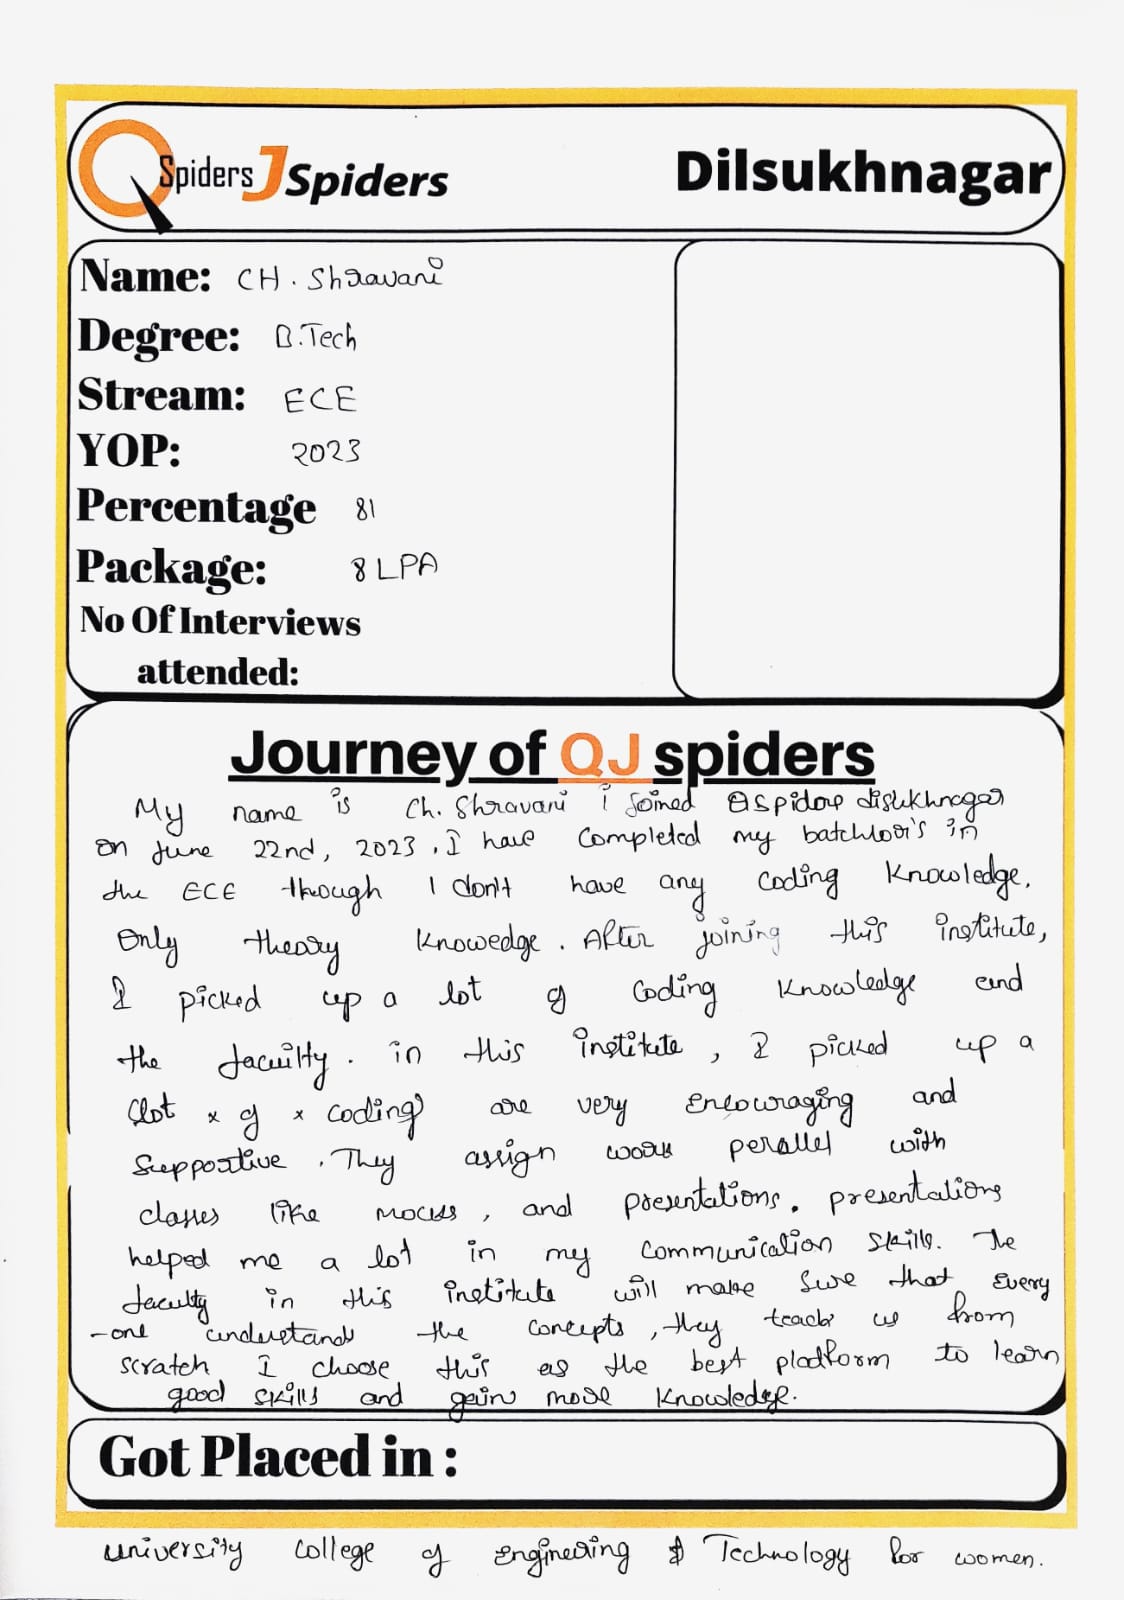 QSpiders JSpiders Dilsukhnagar
Name: CH. Shravani
Degree: B.Tech
Stream: ECE
YOP: 2023
Percentage 81
Package: 8 LPA
No Of Interviews
attended:
Journey of QJ spiders
My name is Ch. Shravani i joined Qspider dislukhnagar
on June 22nd, 2023. I have completed my batchloor's in
the ECE through I don't have any coding knowledge.
Only theory knowedge. After joining this institute,
I picked up a lot of coding knowledge and
the facuilty. in this institute, I picked up a
(lot x of x coding) are very encouraging and
supportive. They assign work perallel with
classes like mocks, and presentations. presentations
helped me a lot in my communication skills. The
faculty in this institute will make sure that every
-one understands the concepts, they teach us from
scratch I choose this as the best platform to learn
good skills and gain more knowledge.
Got Placed in :
university college of Engineering & Technology for women.